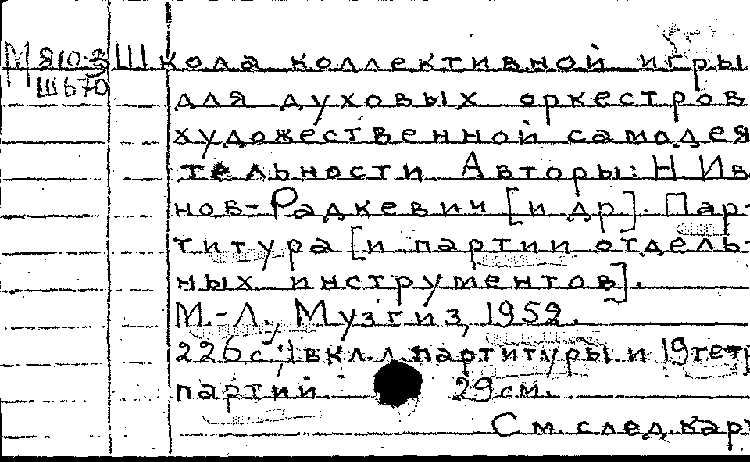 М Я10-3 Школа коллективной игры
Ш670 для духовых оркестров
художественной самодея
тельности Авторы: Н Ив
нов-Радкевич [и др]. Пар-
титура [и партии отдель-
ных инструментов].
М.-Л., Музгиз, 1952.
226 с; 1 вкл. л. партитуры и 19 тетр
партий 29 см.
См. след. кар